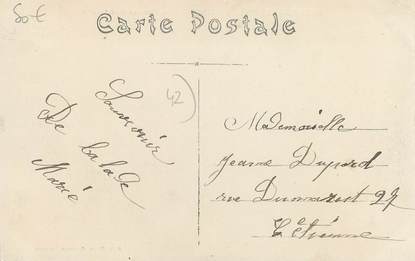 50 €
Carte Postale
42
Souvenir
De
Marie
Mademoiselle
Jeanne
rue 27
St Etienne